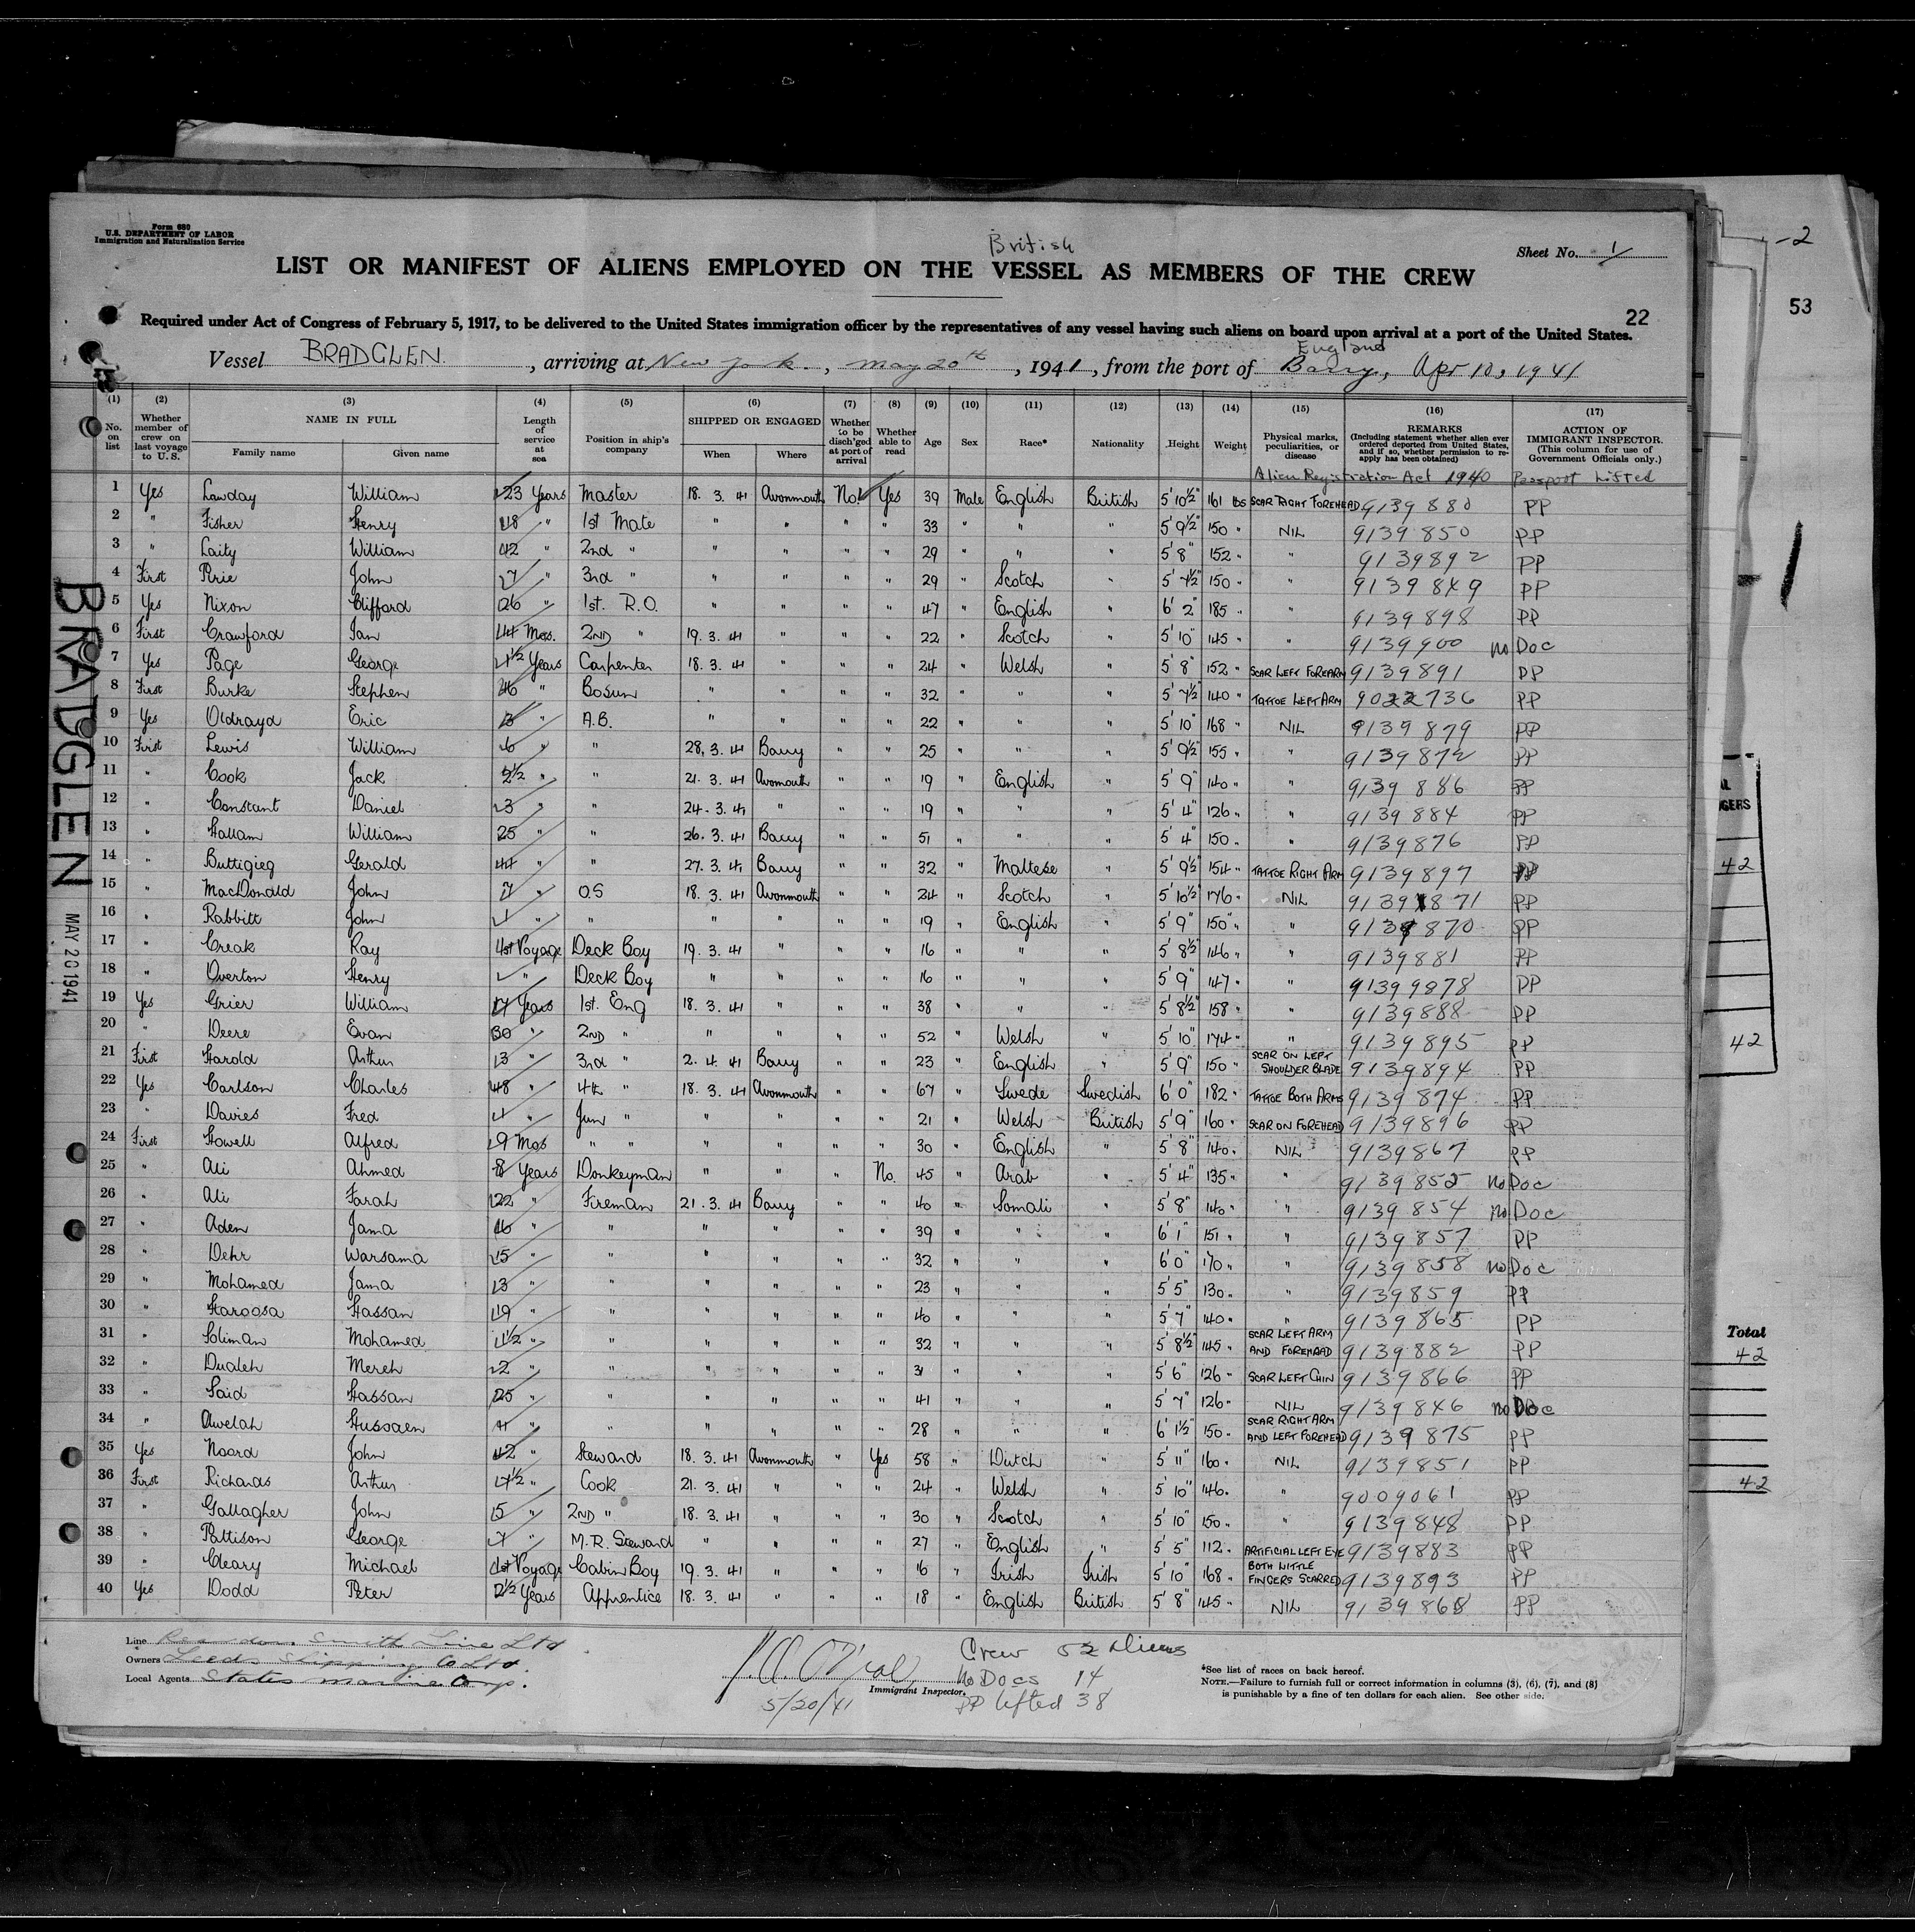 Form 680
U.S. DEPARTMENT OF LABOR
Immigration and Naturalization Service
British
Sheet No. 1
-2
LIST OR MANIFEST OF ALIENS EMPLOYED ON THE VESSEL AS MEMBERS OF THE CREW
53
22
Required under Act of Congress of February 5, 1917, to be delivered to the United States immigration officer by the representatives of any vessel having such aliens on board upon arrival at a port of the United States.
England
Vessel BRADGLEN. , arriving at New York , May 20th , 1941 , from the port of Barry, Apr 10, 1941
(1) (2) (3) (4) (5) (6) (7) (8) (9) (10) (11) (12) (13) (14) (15) (16) (17)
No. on list Whether member of crew on last voyage to U.S. NAME IN FULL Family name Given name Length of service at sea Position in ship's company SHIPPED OR ENGAGED When Where Whether to be disch'ged at port of arrival Whether able to read Age Sex Race* Nationality Height Weight Physical marks, peculiarities, or disease REMARKS (Including statement whether alien ever ordered deported from United States, and if so, whether permission to re-apply has been obtained) ACTION OF IMMIGRANT INSPECTOR. (This column for use of Government Officials only.)
Alien Registration Act 1940 Passport Lifted
1 Yes Lawday William 23 Years Master 18. 3. 41 Avonmouth No Yes 39 Male English British 5' 10½" 161 lbs SCAR RIGHT FOREHEAD 9139880 PP
2 " Fisher Henry 18 " 1st Mate " " " " 33 " " " 5' 9½" 150 " NIL 9139850 PP
3 " Laity William 12 " 2nd " " " " " 29 " " " 5' 8" 152 " " 9139892 PP
4 First Pirie John 7 " 3rd " " " " " 29 " Scotch " 5' 7½" 150 " " 9139849 PP
5 Yes Nixon Clifford 26 " 1st. R.O. " " " " 47 " English " 6' 2" 185 " " 9139898 PP
6 First Crawford Ian 14 Mos. 2ND " 19. 3. 41 " " " 22 " Scotch " 5' 10" 145 " " 9139900 no Doc
7 Yes Page George 4½ Years Carpenter 18. 3. 41 " " " 24 " Welsh " 5' 8" 152 " SCAR LEFT FOREARM 9139891 PP
8 First Burke Stephen 16 " Bosun " " " " 32 " " " 5' 7½" 140 " TATTOE LEFT ARM 9022736 PP
9 Yes Oldrayd Eric 3 " A.B. " " " " 22 " " " 5' 10" 168 " NIL 9139879 PP
10 First Lewis William 6 " " 28. 3. 41 Barry " " 25 " " " 5' 9½" 155 " " 9139872 PP
11 " Cook Jack 2½ " " 21. 3. 41 Avonmouth " " 19 " English " 5' 9" 140 " " 9139886 PP
12 " Constant Daniel 3 " " 24. 3. 41 " " " 19 " " " 5' 4" 126 " " 9139884 PP
13 " Hallam William 25 " " 26. 3. 41 Barry " " 51 " " " 5' 4" 150 " " 9139876 PP
14 " Buttigieg Gerald 14 " " 27. 3. 41 Barry " " 32 " Maltese " 5' 9½" 154 " TATTOE RIGHT ARM 9139897 PP
15 " MacDonald John 7 " O.S 18. 3. 41 Avonmouth " " 24 " Scotch " 5' 10½" 176 " NIL 9139871 PP
16 " Rabbitt John 1 " " " " " " 19 " English " 5' 9" 150 " " 9139870 PP
17 " Creak Ray 1st Voyage Deck Boy 19. 3. 41 " " " 16 " " " 5' 8½" 146 " " 9139881 PP
18 " Overton Henry " Deck Boy " " " " 16 " " " 5' 9" 147 " " 91399878 PP
19 Yes Grier William 17 Years 1st. Eng 18. 3. 41 " " " 38 " " " 5' 8½" 158 " " 9139888 PP
20 " Deere Evan 30 " 2ND " " " " " 52 " Welsh " 5' 10" 174 " " 9139895 PP
21 First Harold Arthur 3 " 3rd " 2. 4. 41 Barry " " 23 " English " 5' 9" 150 " SCAR ON LEFT SHOULDER BLADE 9139894 PP
22 Yes Carlson Charles 48 " 4th " 18. 3. 41 Avonmouth " " 67 " Swede Swedish 6' 0" 182 " TATTOE BOTH ARMS 9139874 PP
23 " Davies Fred 1 " Jun " " " " " 21 " Welsh British 5' 9" 160 " SCAR ON FOREHEAD 9139896 PP
24 First Howell Alfred 9 Mos " " " " " " 30 " English " 5' 8" 140 " NIL 9139867 PP
25 " Ali Ahmed 8 Years Donkeyman " " " No. 45 " Arab " 5' 4" 135 " " 9139852 no Doc
26 " Ali Farah 22 " Fireman 21. 3. 41 Barry " " 40 " Somali " 5' 8" 140 " " 9139854 no Doc
27 " Aden Jama 16 " " " " " " 39 " " " 6' 1" 151 " " 9139857 PP
28 " Dehr Warsama 15 " " " " " " 32 " " " 6' 0" 170 " " 9139858 no Doc
29 " Mohamed Jama 3 " " " " " " 23 " " " 5' 5" 130 " " 9139859 PP
30 " Haroosa Hassan 19 " " " " " " 40 " " " 5' 7" 140 " " 9139865 PP
31 " Soliman Mohamed 1½ " " " " " " 32 " " " 5' 8½" 145 " SCAR LEFT ARM AND FOREHEAD 9139882 PP
32 " Dualeh Mereh 2 " " " " " " 31 " " " 5' 6" 126 " SCAR LEFT CHIN 9139866 PP
33 " Said Hassan 25 " " " " " " 41 " " " 5' 7" 126 " NIL 9139846 no Doc
34 " Awelah Hussaen 4 " " " " " " 28 " " " 6' 1½" 150 " SCAR RIGHT ARM AND LEFT FOREHEAD 9139875 PP
35 Yes Noord John 42 " Steward 18. 3. 41 Avonmouth " Yes 58 " Dutch " 5' 11" 160 " NIL 9139851 PP
36 First Richards Arthur 7½ " Cook 21. 3. 41 " " " 24 " Welsh " 5' 10" 146 " " 9009061 PP
37 " Gallagher John 5 " 2ND " 18. 3. 41 " " " 30 " Scotch " 5' 10" 150 " " 9139848 PP
38 " Pattison George 7 " M.R. Steward " " " " 27 " English " 5' 5" 112 " ARTIFICIAL LEFT EYE 9139883 PP
39 " Cleary Michael 1st Voyage Cabin Boy 19. 3. 41 " " " 16 " Irish Irish 5' 10" 168 " BOTH LITTLE FINGERS SCARRED 9139893 PP
40 Yes Dodd Peter 2½ Years Apprentice 18. 3. 41 " " " 18 " English British 5' 8" 145 " NIL 9139868 PP
BRADGLEN
MAY 20 1941
GERS
42
42
Total
42
42
Line Reardon Smith Line Ltd
Owners Leeds Shipping Co Ltd.
Local Agents States Marine Corp.
Immigrant Inspector.
5/20/41
Crew 52 Aliens
No Docs 14
PP lifted 38
*See list of races on back hereof.
NOTE.—Failure to furnish full or correct information in columns (3), (6), (7), and (8)
is punishable by a fine of ten dollars for each alien. See other side.